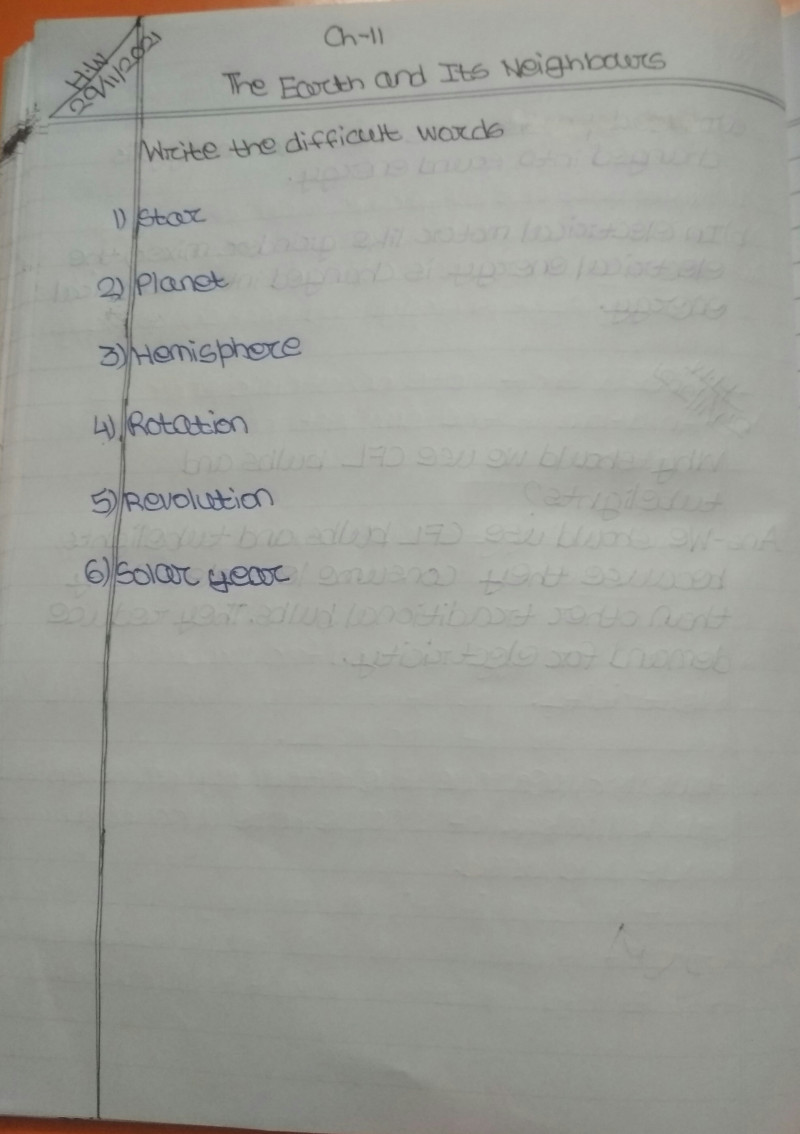 H.W
29/11/2021
Ch-11
The Earth and Its Neighbours
Write the difficult words
1) Star
2) Planet
3) Hemisphere
4) Rotation
5) Revolution
6) Solar year